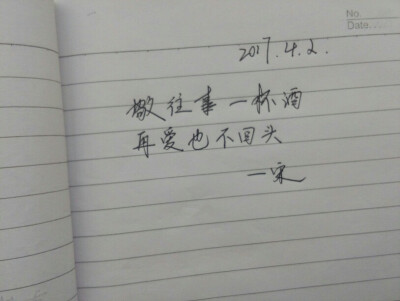 No.
Date
2017.4.2.
敬往事一杯酒
再爱也不回头
一宋